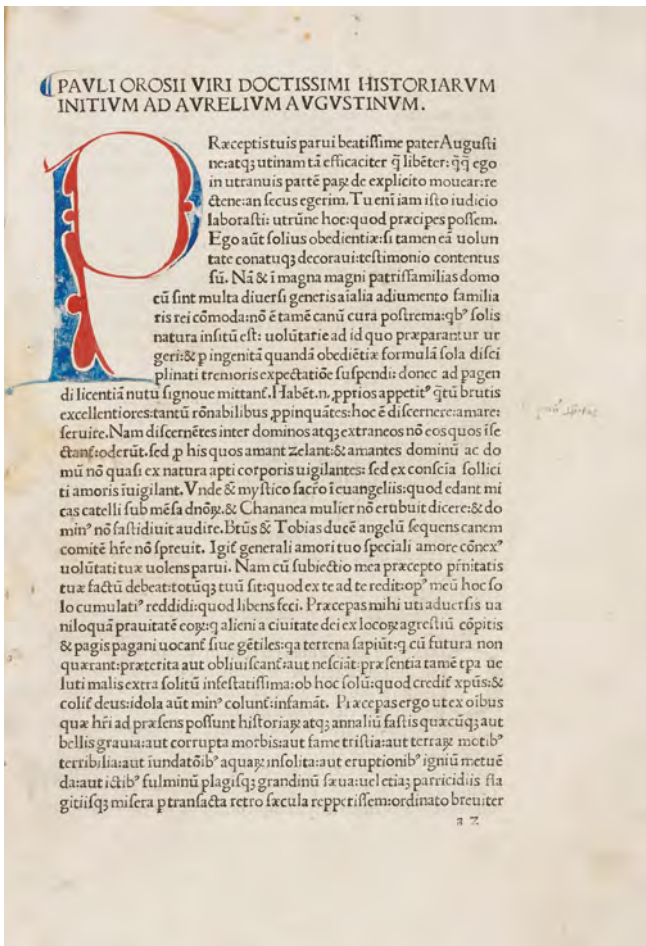 PAVLI OROSII VIRI DOCTISSIMI HISTORIARVM
INITIVM AD AVRELIVM AVGVSTINVM.
PRæceptis tuis parui beatissime pater Augusti
ne:atqꝫ utinam tā efficaciter q̄ libēter: q̄q̄ ego
in utranuis partē paꝝ de explicito mouear:re
ctene:an secus egerim. Tu enī iam isto iudicio
laborasti: utrūne hoc:quod præcipes possem.
Ego aūt solius obedientiæ:si tamen eā uolun
tate conatuqꝫ decoraui:testimonio contentus
sū. Nā & ī magna magni patrissamilias domo
cū sint multa diuersi generis aīalia adiumento familia
ris rei cōmoda:nō ē tamē canū cura postrema:qbꝰ solis
natura insitū est: uolūtarie ad id quo præparantur ur
geri:& p ingenitā quandā obediētiæ formulā sola disci
plinati tremoris expectatiōe suspendi: donec ad pagen
di licentiā nutu signoue mittant̄. Habēt.n. ꝓprios appetitꝰ q̄tū brutis
excellentiores:tantū rōnabilibus ꝓpinquātes:hoc ē discernere:amare:
seruire. Nam discernētes inter dominos atqꝫ extraneos nō eos quos īse
ctant̄:oderūt. sed ꝓ his quos amant zelant:& amantes dominū ac do
mū nō quasi ex natura apti corporis uigilantes: sed ex conscia sollici
ti amoris īuigilant. Vnde & mystico sacro ī euangeliis:quod edant mi
cas catelli sub mēsa dnōꝝ. & Chananea mulier nō erubuit dicere:& do
minꝰ nō fastidiuit audire. Btūs & Tobias ducē angelū sequens canem
comitē hr̄e nō spreuit. Igit̄ generali amori tuo speciali amore cōnexꝰ
uolūtati tuæ uolens parui. Nam cū subiectio mea præcepto pr̄nitatis
tuæ factū debeat:totūqꝫ tuū sit:quod ex te ad te redit:opꝰ meū hoc so
lo cumulatiꝰ reddidi:quod libens feci. Præcepas mihi uti aduersis ua
niloquā prauitatē eoꝝ:q alieni a ciuitate dei ex locoꝝ agrestiū cōpitis
& pagis pagani uocant̄ siue gētiles:qa terrena sapiūt:q cū futura non
quærant:præterita aut obliuiscant̄:aut nesciāt:præsentia tamē tpa ue
luti malis extra solitū infestatissima:ob hoc solū:quod credit̄ xpūs:&
colit̄ deus:idola aūt minꝰ colunt̄:infamāt. Præcepas ergo ut ex oībus
quæ hr̄i ad præsens possunt historiaꝝ atqꝫ annaliū fastis quæcūqꝫ aut
bellis grauia:aut corrupta morbis:aut fame tristia:aut terraꝝ motibꝰ
terribilia:aut īundatōibꝰ aquaꝝ insolita:aut eruptionibꝰ igniū metuē
da:aut ictibꝰ fulminū plagisqꝫ grandinū sæua:uel etiaꝫ parricidiis fla
gitiisqꝫ misera p transacta retro sæcula repperissem:ordinato breuiter
a 2